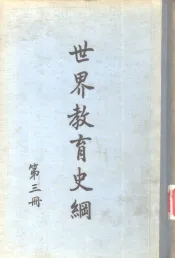 世界教育史綱
第三冊